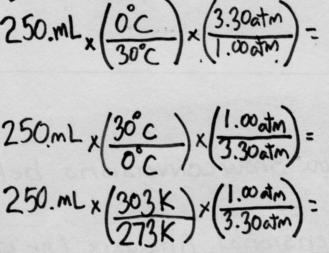 250.mL × (0°C / 30°C) × (3.30atm / 1.00atm) =
250.mL × (30°C / 0°C) × (1.00atm / 3.30atm) =
250.mL × (303K / 273K) × (1.00atm / 3.30atm) =